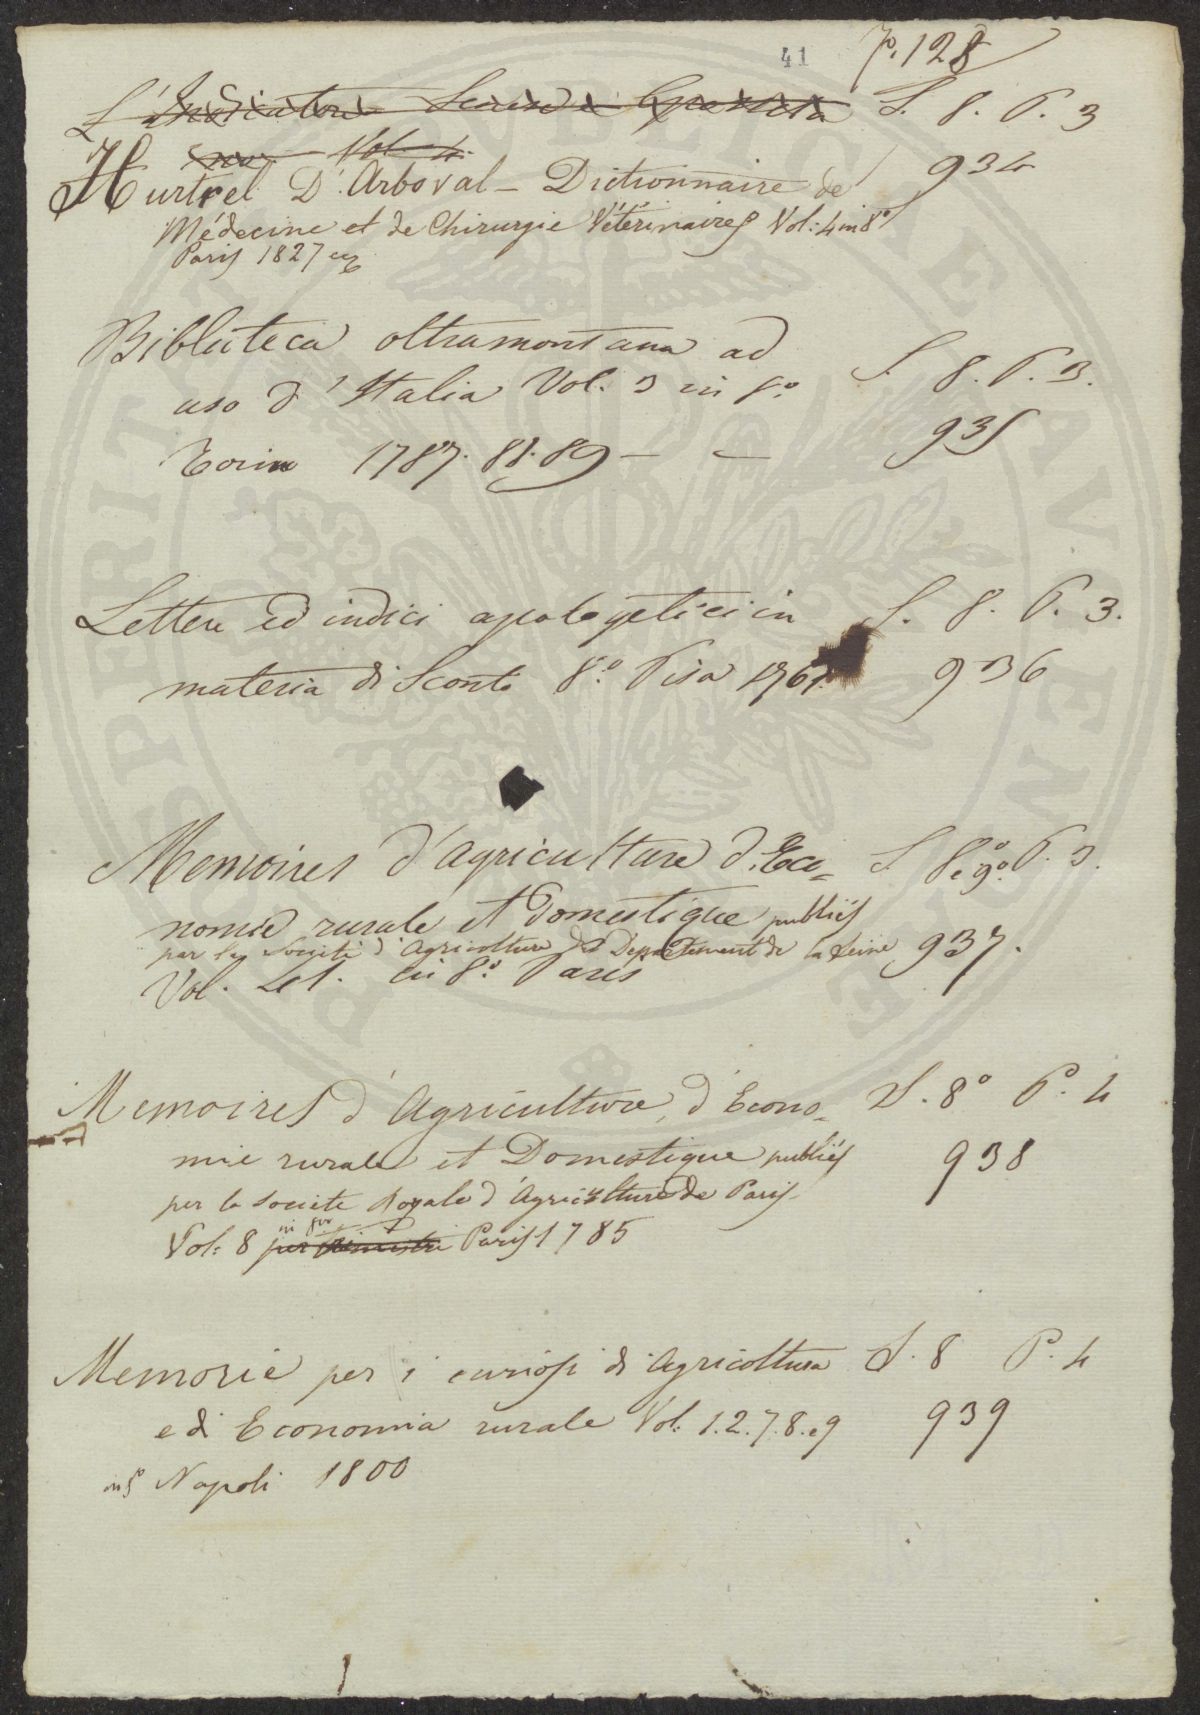 41 p. 128
L'Indicatore Sanese S. 8. P. 3
Vol. 4.
Hurtrel D'Arboval - Dictionnaire de 934
Médecine et de Chirurgie Vétérinaires Vol: 4 in 8°
Paris 1827
Biblioteca oltramontana ad S. 8. P. 3.
uso d'Italia Vol. 3 in 8.° 935
Torino 1787. 88. 89 — —
Lettere ed indici apologetici in S. 8. P. 3.
materia di Sconto 8.° Pisa 1761. 936
Memoires d'agriculture d'Eco= S. 8° e 9° P. 3.
nomie rurale et domestique publiés
par la Societé d'Agricolture du Departement de la Seine 937.
Vol. in 8.° Paris
Memoires d'Agriculture, d'Econo= S. 8° P.° 4
mie rurale et Domestique publiés 938
per la Societe Royale d'Agriculture de Paris
Vol: 8 in 8vo per trimestri Paris 1785
Memorie per i curiosi di Agricoltura S. 8 P. 4
e di Economia rurale Vol: 1. 2. 7. 8. e 9 939
in 8° Napoli 1800
PROSPERITATI PUBLICAE AVGENDAE